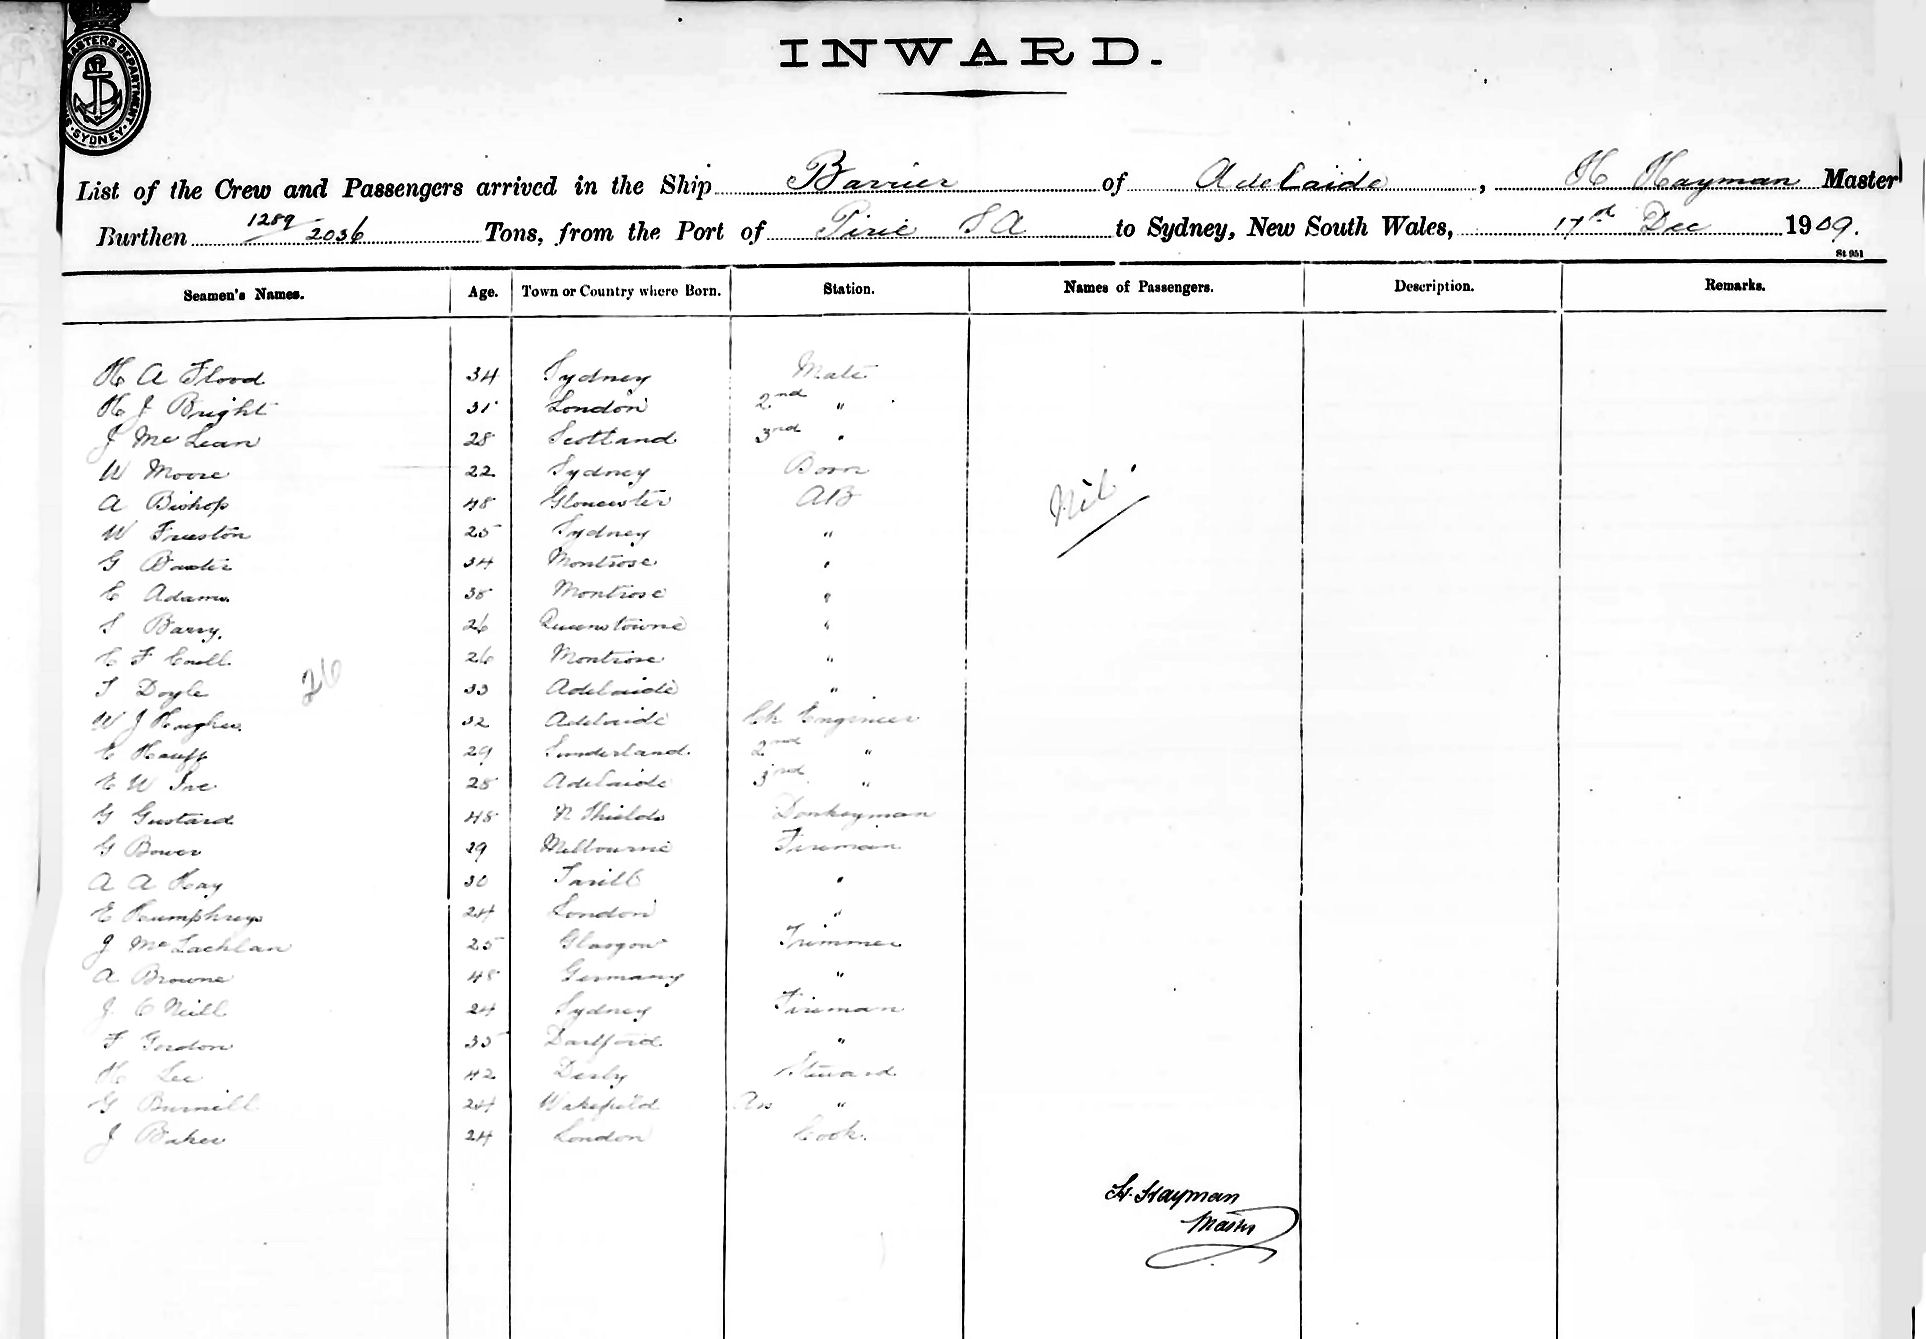 MASTERS DEPARTMENT
SYDNEY
INWARD.
List of the Crew and Passengers arrived in the Ship Barrier of Adelaide, H Hayman Master
Burthen 1289/2036 Tons, from the Port of Pirie SA to Sydney, New South Wales, 17th Dec 1909.
St 951
Seamen's Names. Age. Town or Country where Born. Station. Names of Passengers. Description. Remarks.
H A Flood 34 Sydney Mate
H J Bright 31 London 2nd "
J McLean 28 Scotland 3rd "
W Moore 22 Sydney
A Bishop 48 Gloucester AB
Nil
W Freeston 25 Sydney "
G Baxter 34 Montrose "
E Adams 38 Montrose "
S Barry. 26 Queenstowne "
E F 26 Montrose "
26
T Doyle 33 Adelaide "
W J Hughes 32 Adelaide Ch Engineer
E 29 Sunderland 2nd "
E W 28 Adelaide 3rd "
G Gustard 48 N Shields Donkeyman
G Bower 29 Melbourne Fireman
A A Hay 30 "
E Humphreys 24 London "
J McLachlan 25 Glasgow Trimmer
A Browne 48 Germany "
J O Neill 24 Sydney Fireman
F Gordon 35 Dartford "
H Lee 42 Derby Steward
G Burnell 24 Wakefield As "
J Baker 24 London Cook.
H. Hayman
Master